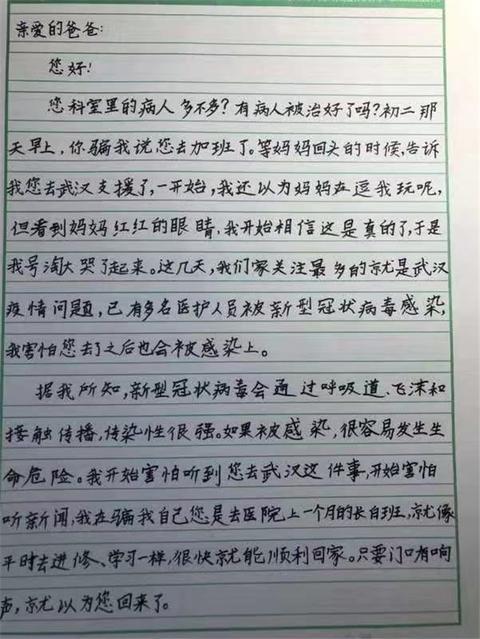 亲爱的爸爸:
您好!
您科室里的病人多不多?有病人被治好了吗?初二那
天早上,你骗我说您去加班了。等妈妈回头的时候,告诉
我您去武汉支援了,一开始,我还以为妈妈在逗我玩呢,
但看到妈妈红红的眼睛,我开始相信这是真的了,于是
我号淘大哭了起来。这几天,我们家关注最多的就是武汉
疫情问题,已有多名医护人员被新型冠状病毒感染,
我害怕您去了之后也会被感染上。
据我所知,新型冠状病毒会通过呼吸道、飞沫和
接触传播,传染性很强。如果被感染,很容易发生生
命危险。我开始害怕听到您去武汉这件事,开始害怕
听新闻,我在骗我自己您是去医院上一个月的长白班,就像
平时去进修、学习一样,很快就能顺利回家。只要门口有响
声,就以为您回来了。